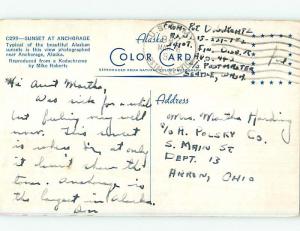 C299—SUNSET AT ANCHORAGE
Typical of the beautiful Alaskan
sunsets is this view photographed
near Anchorage, Alaska.
Reproduced from a Kodachrome
by Mike Roberts
Alaska
COLOR CARD
FROM
POSTMASTER
SEATTLE, WASH.
Hi Aunt Martha,
Was sick for a while
but feeling very well
now. This sunset
is
it don't show the
town. Anchorage is
the largest in Alaska.
Don
Address
Mrs. Martha Harding
c/o M. Polsky Co.
S. Main St
Dept. 13
Akron, Ohio